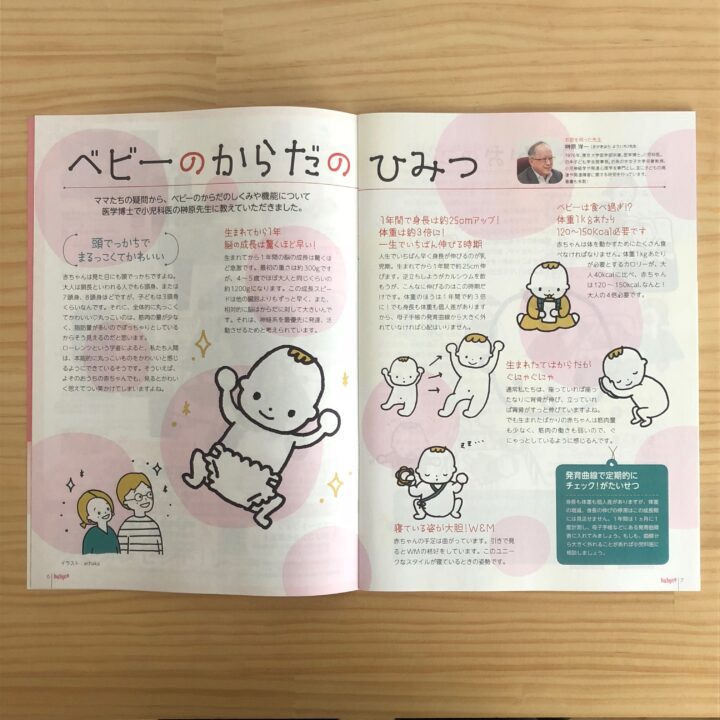 ベビーのからだのひみつ
ママたちの疑問から、ベビーのからだのしくみや機能について
医学博士で小児科医の榊原先生に教えていただきました。
頭でっかちで
まるっこくてかわいい
赤ちゃんは見た目にも頭でっかちですよね。
大人は胴長といわれる人でも6頭身、または
7頭身、8頭身ほどですが、子どもは3頭身
くらいなんです。それに、全体的に丸っこく
てかわいい♡丸っこいのは、筋肉の量が少な
く、脂肪量が多いのでぽっちゃりとしている
からそう見えるのだと思います。
ローレンツという学者によると、私たち人間
は、本能的に丸っこいものをかわいいと感じ
るようにできているそうです。そういえば、
よそのおうちの赤ちゃんでも、見るとかわい
く思えてつい笑かけてしまいますよね。
生まれてから1年
脳の成長は驚くほど早い！
生まれてから1年間の脳の成長は驚くほ
ど急激です。最初の重さは約300gです
が、4〜5歳でほぼ大人と同じくらいの
約1200gになります。この成長スピー
ドは他の臓器よりもずっと早く、また、
相対的に脳はからだに対して大きいんで
す。それは、神経系を最優先に発達、活
動させるためと考えられています。
イラスト：aihaka
6 babyco
お話を伺った先生
榊原 洋一（さかきはら・よういち）先生
1年間で身長は約25cmアップ！
体重は約3倍に！
一生でいちばん伸びる時期
人生でいちばん早く身長が伸びるのが乳
児期。生まれてから1年間で約25cm伸
びます。逆立ちしようがカルシウムを飲
もうが、こんなに伸びるのはこの時期だ
けです。体重のほうは1年間で約3倍
に！でも身長も体重も個人差があります
から、母子手帳の発育曲線から大きく外
れていなければ心配はいりません。
ベビーは食べ過ぎ!?
体重1kgあたり
120〜150Kcal必要です
赤ちゃんは体を動かすためにたくさん食
べなければなりません。体重1kgあたり
が必要とするカロリーが、大
人40kcalに比べ、赤ちゃん
は120〜150kcal。なんと！
大人の4倍必要です。
生まれたてはからだが
ぐにゃぐにゃ
通常私たちは、座っていれば座っ
たなりに背骨が伸び、立っていれ
ば背骨がすっと伸びていますよね。
でも生まれたばかりの赤ちゃんは筋肉量
も少なく、筋肉の働きも弱いので、ぐ
にゃっとしているように感じるんです。
zz・・・
寝ている姿が大胆！W&M
赤ちゃんの手足は曲がっています。引きで見
るとWMの格好をしています。このユニー
クなスタイルが寝ているときの姿勢です。
発育曲線で定期的に
チェック！がたいせつ
身長も体重も個人差がありますが、体重
の増減、身長の伸びの停滞はこの成長期
には見逃せません。1年間は1ヵ月に1
度計測し、母子手帳などにある発育曲線
表に入れてみましょう。もしも、曲線か
ら大きく外れることがあれば小児科医に
相談しましょう。
babyco 7